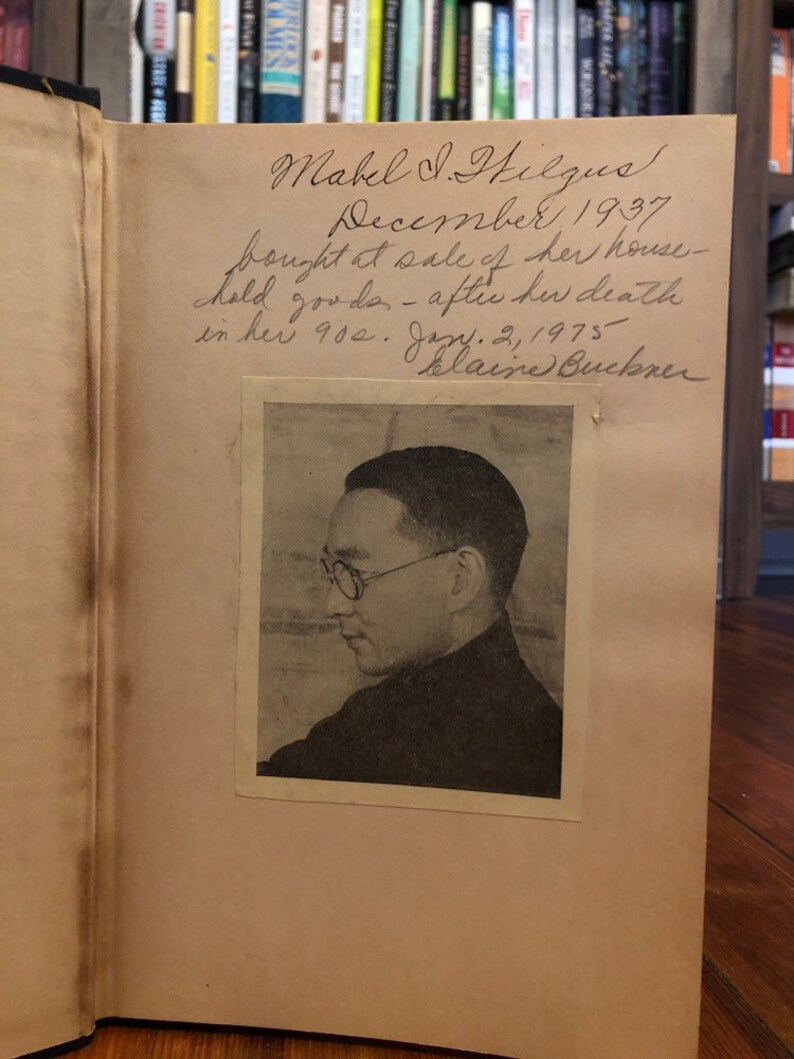 Mabel I. Wilgus
December 1937
bought at sale of her house-
hold goods – after her death
in her 90s. Jan. 2, 1975
Elaine Buckner